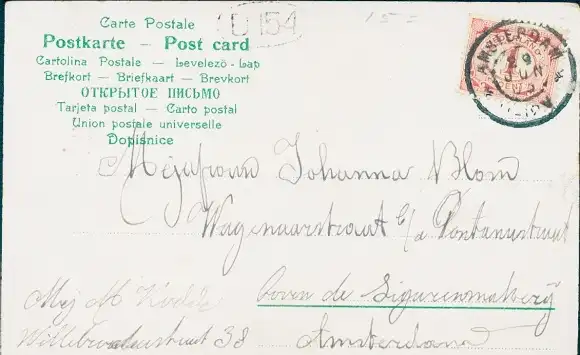 Carte Postale
Postkarte – Post card
Cartolina Postale – Levelező-Lap
Brefkort – Briefkaart – Brevkort
ОТКРЫТОЕ ПИСЬМО
Tarjeta postal – Carto postal
Union postale universelle
Dopisnice
D 154
AMSTERDAM
JUN
Mejufrouw Johanna Blom
Wagenaarstraat b/a Pontanusstraat
boven de Sigarenmakerij
Amsterdam
Mej M
38